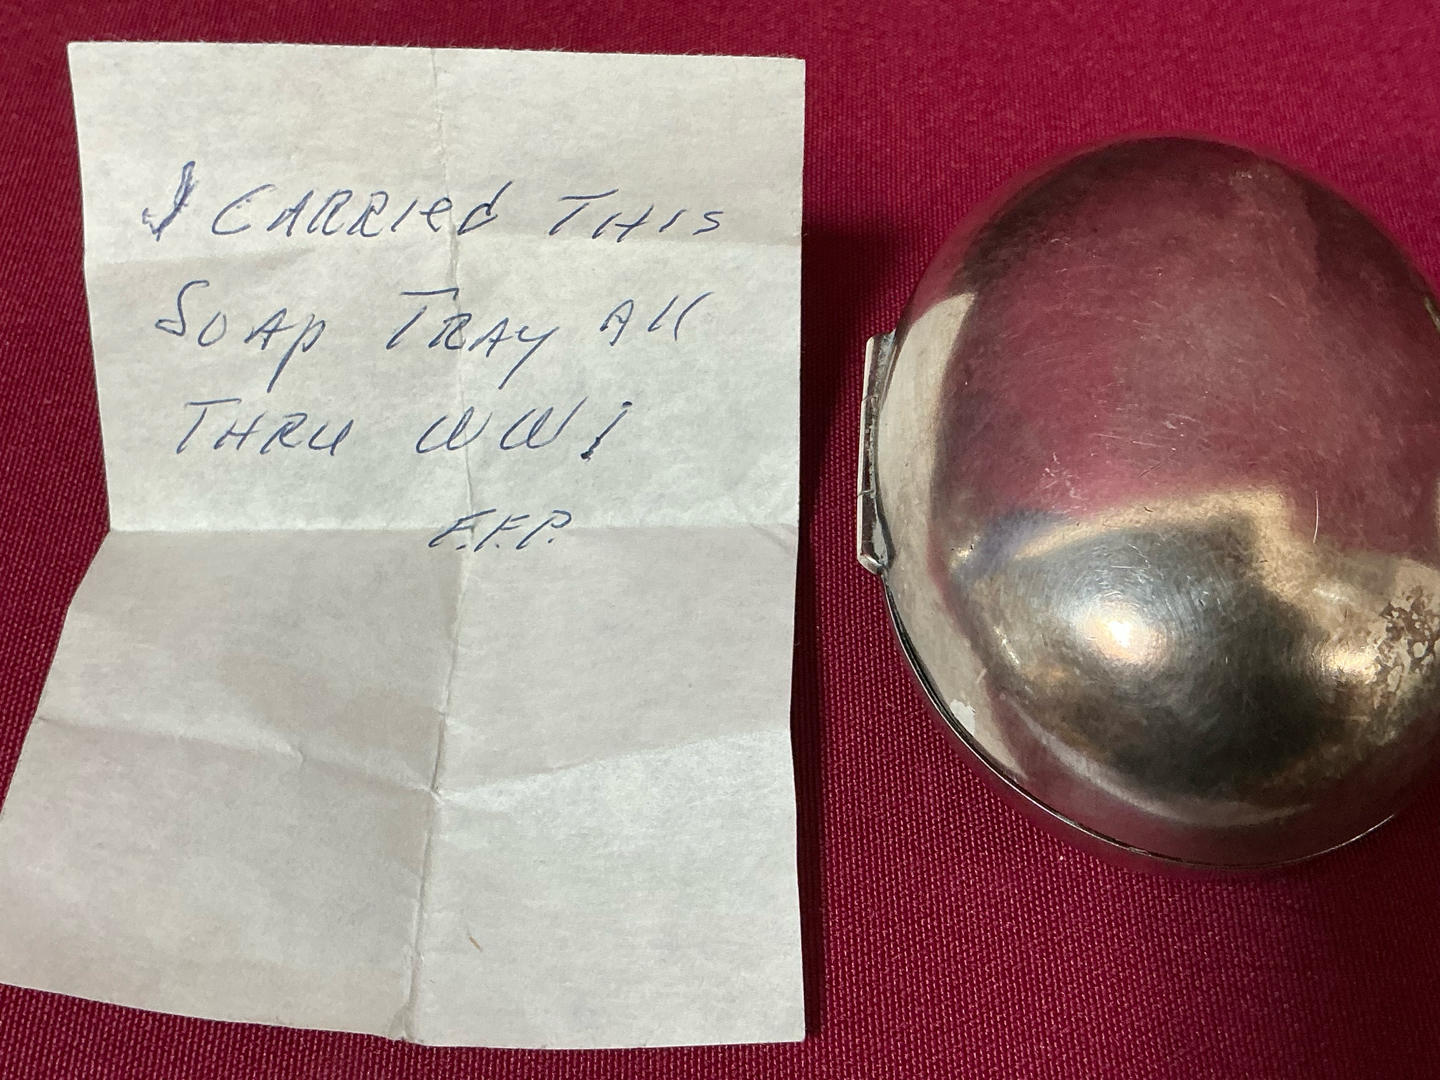 I CARRIED THIS
SOAP TRAY All
THRU WW I
F.F.P.